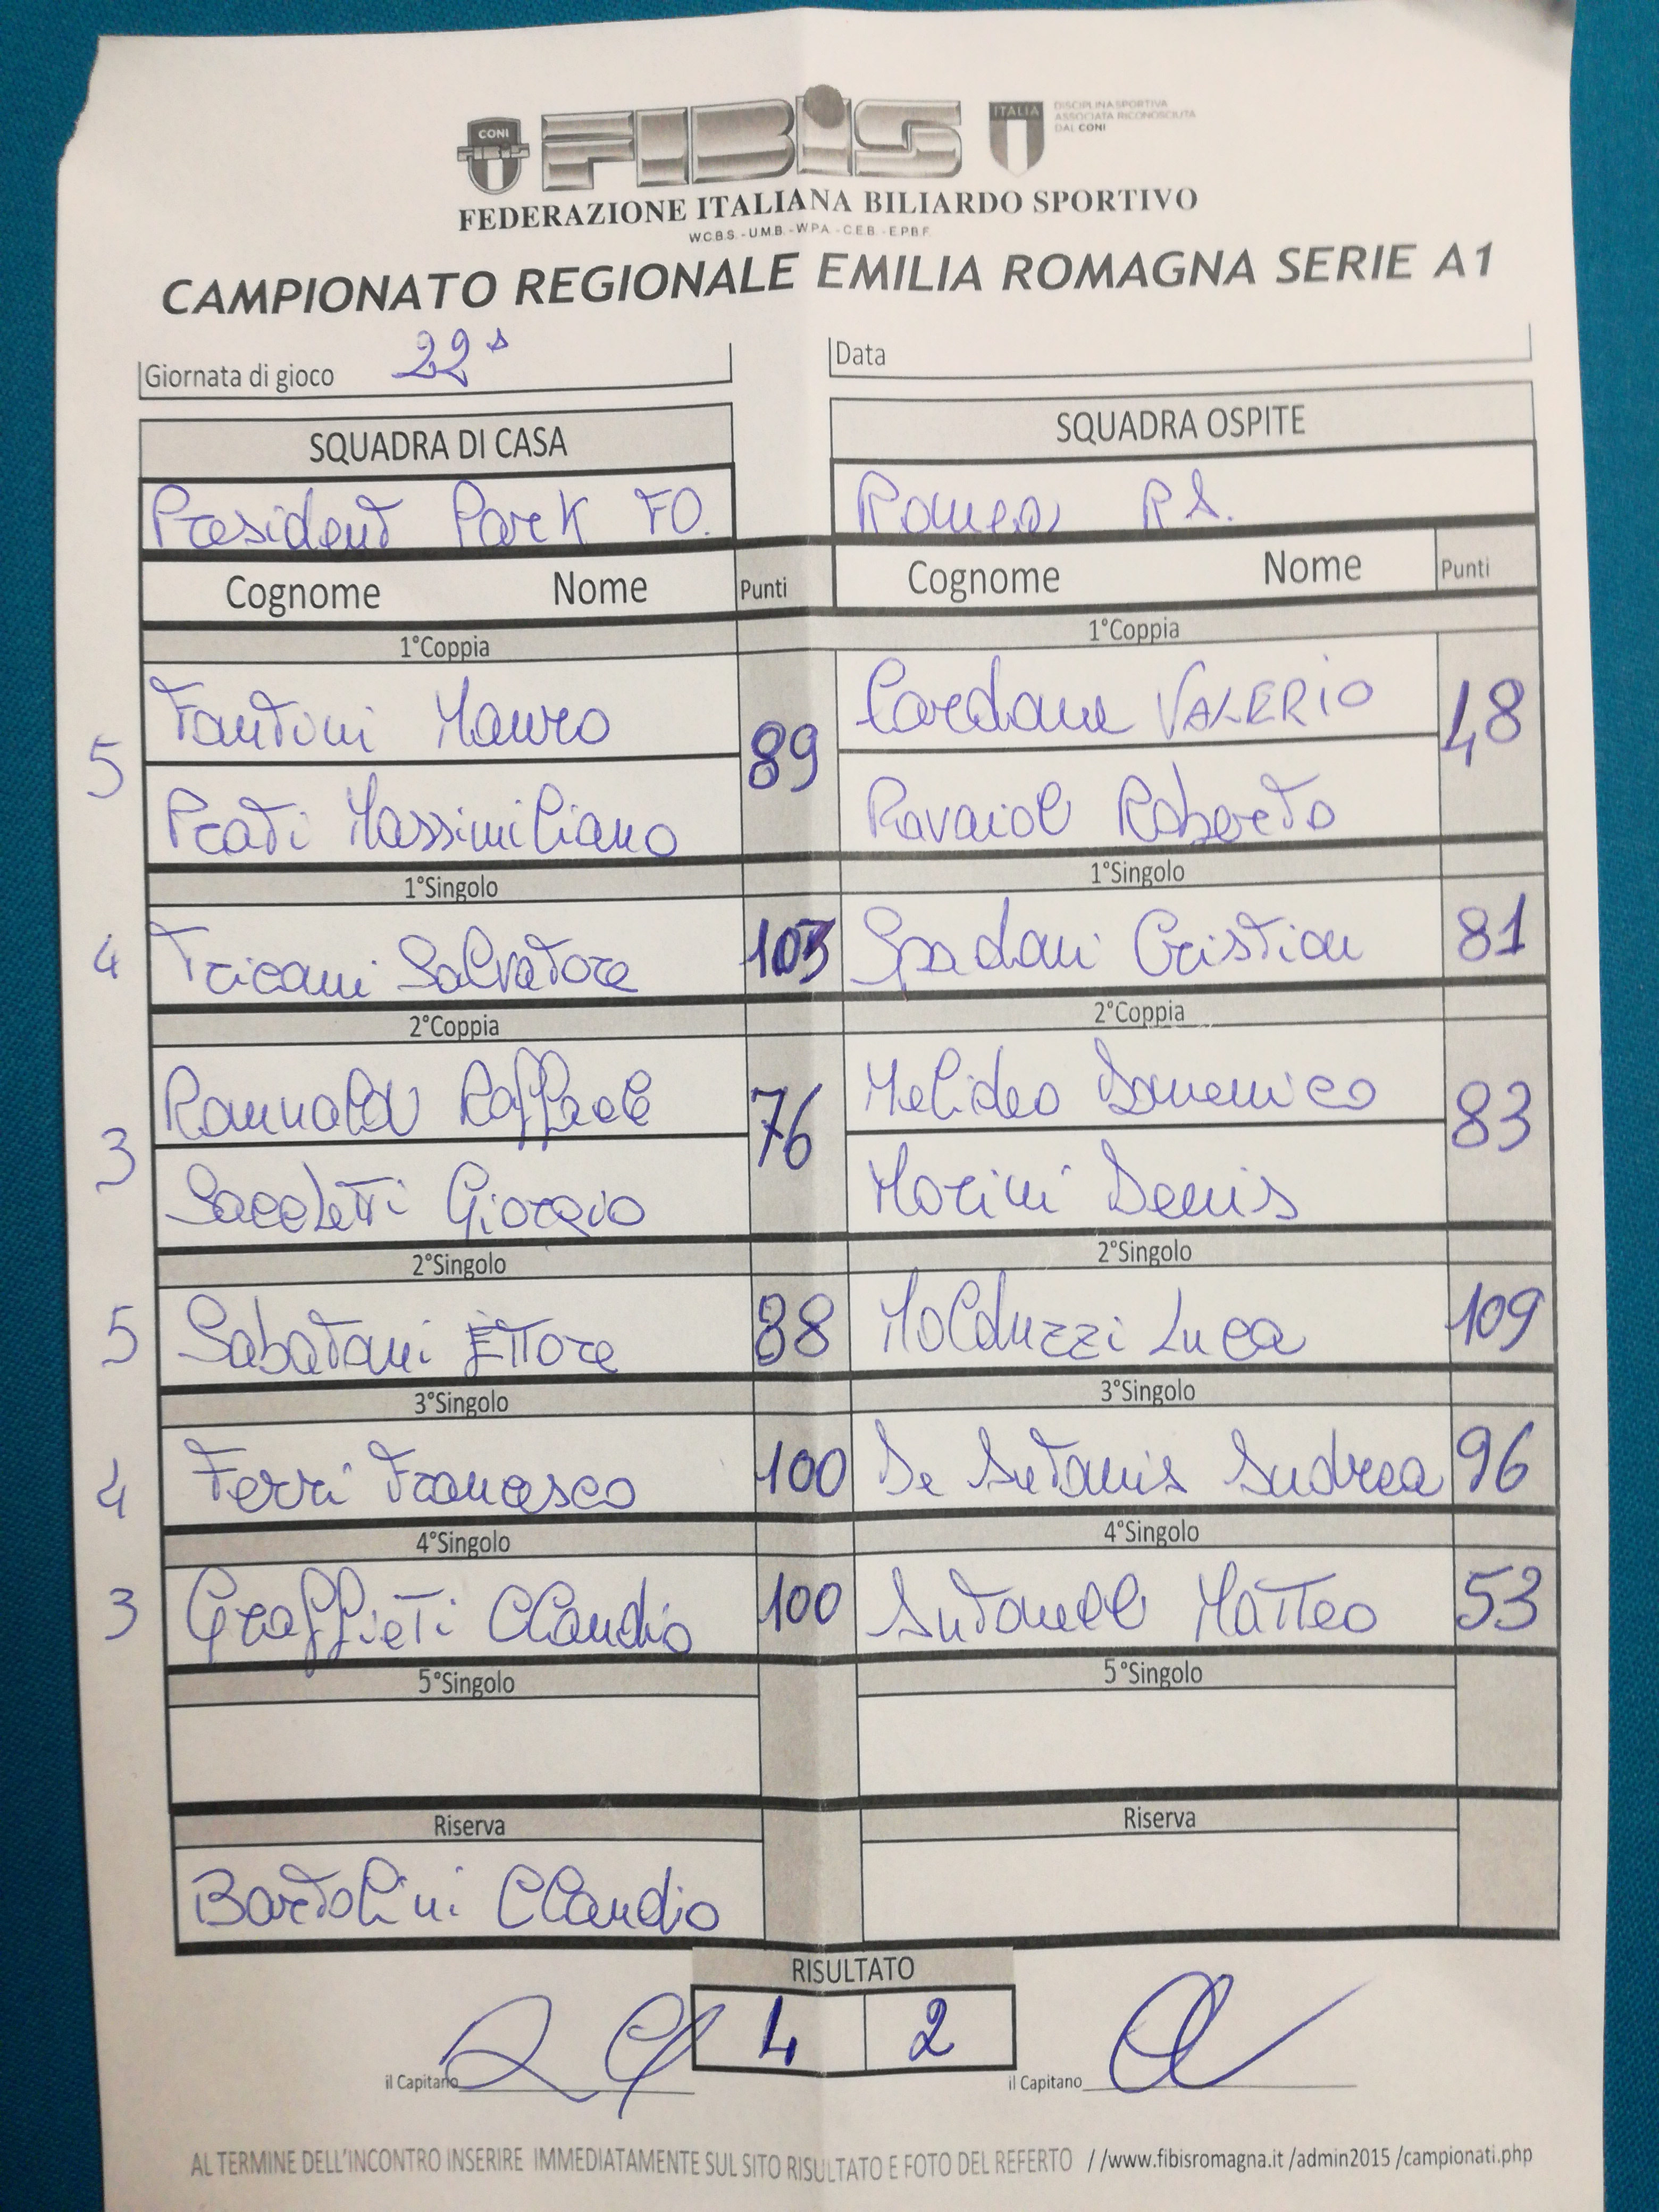 CONI
FIBiS
ITALIA
DISCIPLINA SPORTIVA
ASSOCIATA RICONOSCIUTA
DAL CONI
FEDERAZIONE ITALIANA BILIARDO SPORTIVO
W.C.B.S. - U.M.B. - W.P.A. - C.E.B. - E.P.B.F.
CAMPIONATO REGIONALE EMILIA ROMAGNA SERIE A1
Giornata di gioco 22ª Data
SQUADRA DI CASA SQUADRA OSPITE
President Park FO. Romea RA.
Cognome Nome Punti Cognome Nome Punti
1°Coppia 1°Coppia
Fantini Mauro 89 Cardone VALERIO 48
5
Prati Massimiliano Ravaioli Roberto
1°Singolo 1°Singolo
4 Tricani Salvatore 103 Spadoni Cristian 81
2°Coppia 2°Coppia
Raffaele 76 Melideo Domenico 83
3
Sacchetti Giorgio Morini Denis
2°Singolo 2°Singolo
5 Sabatani Ettore 88 Molduzzi Luca 109
3°Singolo 3°Singolo
4 Ferri Francesco 100 De Antonis Andrea 96
4°Singolo 4°Singolo
3 Graffieti Claudio 100 Antonelli Matteo 53
5°Singolo 5°Singolo
Riserva Riserva
Bartolini Claudio
RISULTATO
4 2
il Capitano il Capitano
AL TERMINE DELL'INCONTRO INSERIRE IMMEDIATAMENTE SUL SITO RISULTATO E FOTO DEL REFERTO //www.fibisromagna.it /admin2015 /campionati.php